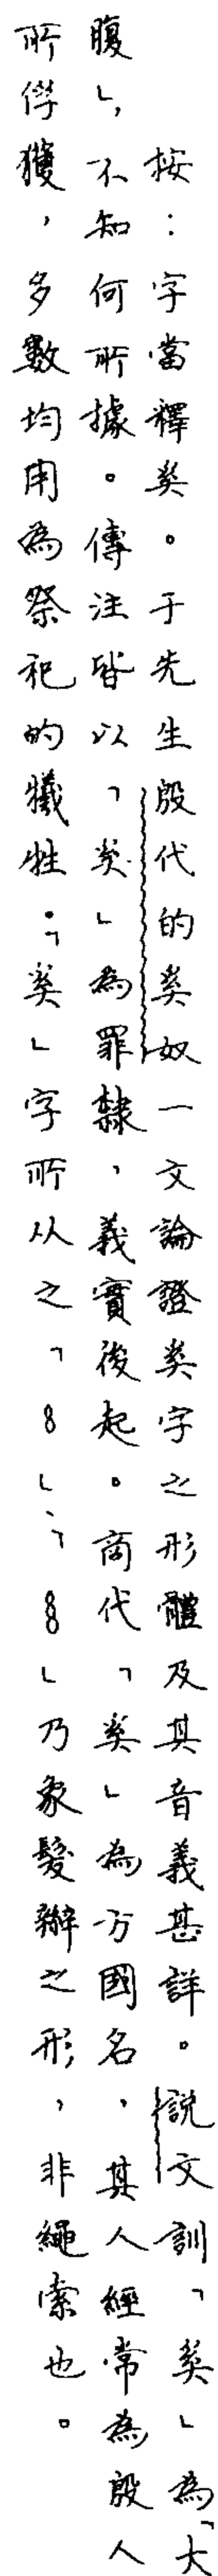 按：字當釋奚。于先生殷代的奚奴一文論證奚字之形體及其音義甚詳。說文訓「奚」為「大
腹」，不知何所據。傳注皆以「奚」為罪隸，義實後起。商代「奚」為方國名，其人經常為殷人
所俘獲，多數均用為祭祀的犧牲。「奚」字所从之「8」、「8」乃象髮辮之形，非繩索也。